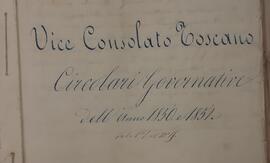 Vice Consolato Toscano
Circolari Governative
dell'Anno 1850 e 1851.